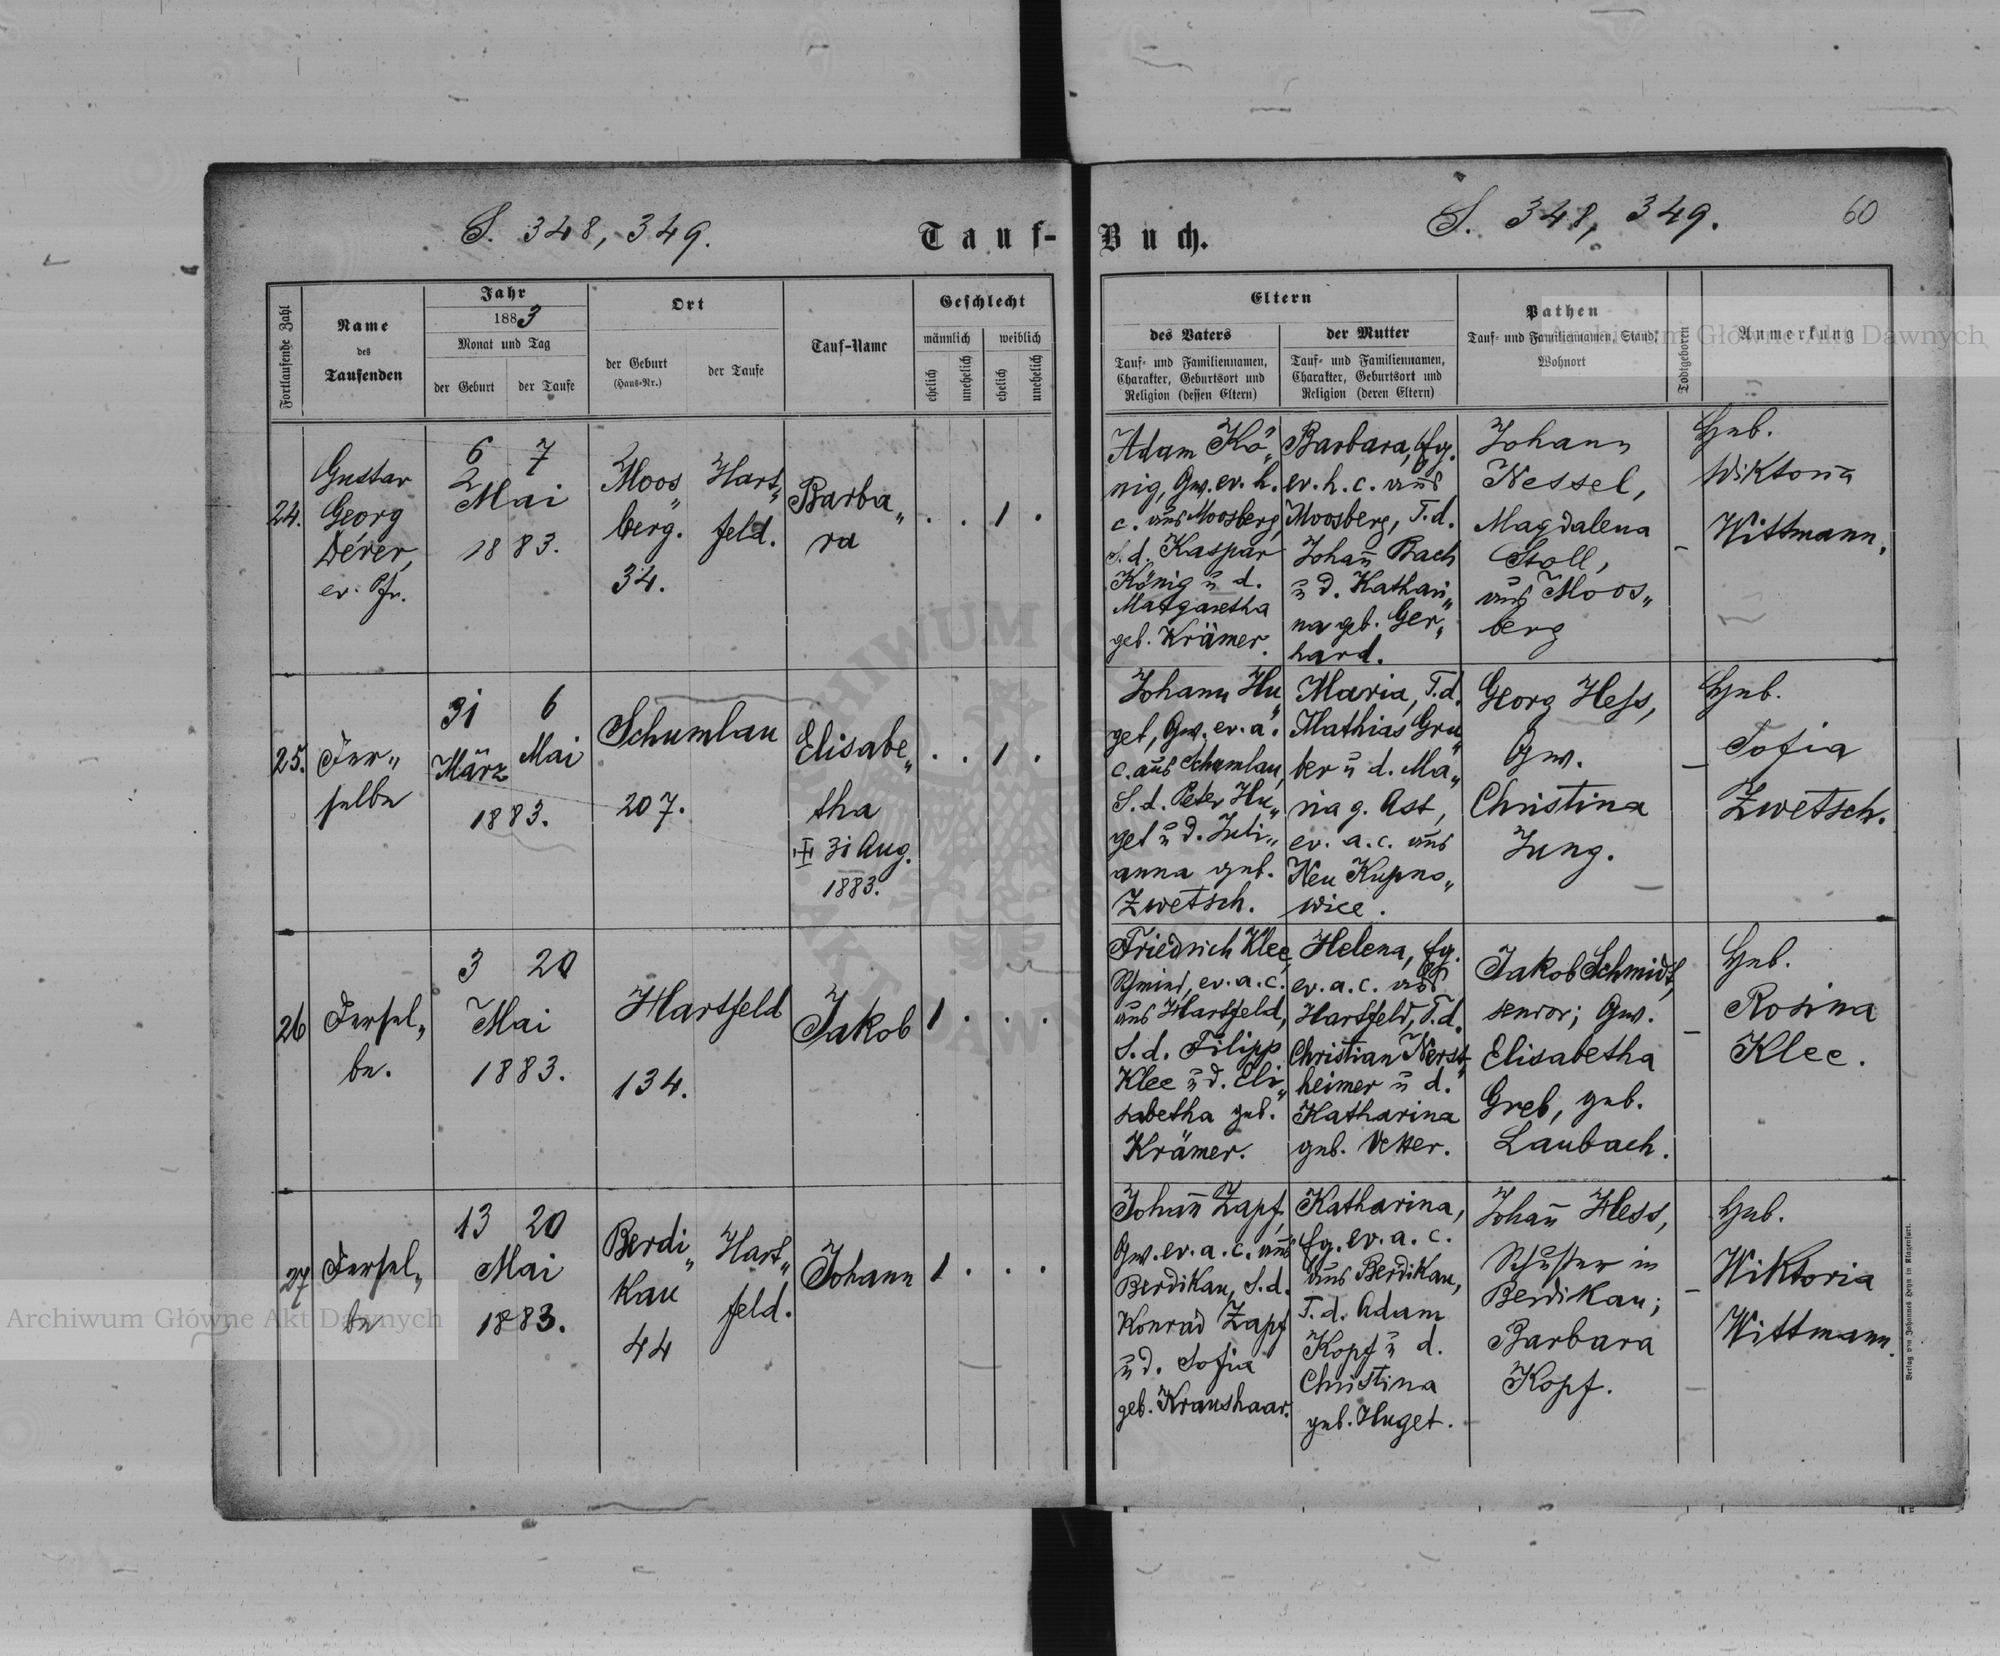 S. 348, 349.
Tauf-Buch.
S. 348, 349.
60
Fortlaufende Zahl
Name
des
Taufenden
Jahr
1883
Monat und Tag
der Geburt
der Taufe
Ort
der Geburt
(Haus-Nr.)
der Taufe
Tauf-Name
Geschlecht
männlich
weiblich
ehelich
unehelich
ehelich
unehelich
Eltern
des Vaters
Tauf- und Familiennamen,
Charakter, Geburtsort und
Religion (dessen Eltern)
der Mutter
Tauf- und Familiennamen,
Charakter, Geburtsort und
Religion (deren Eltern)
Pathen
Tauf- und Familiennamen, Stand,
Wohnort
Todtgeboren
Anmerkung
24.
Gustav
Georg
Dérer,
ev. Pfr.
6 7
Mai
1883.
Moos„
berg.
34.
Hart„
feld.
Barba„
ra
. . 1 .
Adam Kö„
nig, Gw. ev. h.
c. aus Moosberg,
S. d. Kaspar
König u d.
Margaretha
geb. Krämer.
Barbara, Eg.
ev. h. c. aus
Moosberg, T. d.
Johan̄ Bach
u d. Kathari„
na geb. Ger„
hard.
Johann
Nessel,
Magdalena
Stoll,
aus Moos„
berg
–
Heb.
Wiktoria
Wittmann.
25.
Der„
selbe
31 6
März Mai
1883.
Schumlau
207.
Elisabe„
tha
31 Aug.
1883.
. . 1 .
Johann Hu„
get, Gw. ev. a.
c. aus Schumlau,
S. d. Peter Hu„
get u d. Juli„
anna geb.
Zwetsch.
Maria, T. d.
Mathias Gru„
ber u d. Ma„
ria g. Ast,
ev. a. c. aus
Neu Kupno„
wice.
Georg Hess,
Gw.
Christina
Jung.
–
Heb.
Sofia
Zwetsch.
26
Dersel„
be.
3 20
Mai
1883.
Hartfeld
134.
Jakob
1 . . .
Friedrich Klee,
Schmied, ev. a. c.
aus Hartfeld,
S. d. Filipp
Klee u d. Eli„
sabetha geb.
Krämer.
Helena, Eg.
ev. a. c. aus
Hartfeld, T. d.
Christian Nerst„
heimer u d.
Katharina
geb. Vetter.
Jakob Schmidt,
senior; Gw.
Elisabetha
Greb, geb.
Laubach.
–
Heb.
Rosina
Klee.
27
Dersel„
be
13 20
Mai
1883.
Berdi„
kau
44
Hart„
feld.
Johann
1 . . .
Johan̄ Zapf,
Gw. ev. a. c. aus
Berdikau, S. d.
Konrad Zapf
u d. Sofia
geb. Kraushaar.
Katharina,
Eg. ev. a. c.
aus Berdikau,
T. d. Adam
Kopf u d.
Christina
geb. Huget.
Johan̄ Hess,
Schuster in
Berdikau;
Barbara
Kopf.
–
Heb.
Wiktoria
Wittmann.
Verlag von Johannes Heyn in Klagenfurt.
Archiwum Główne Akt Dawnych
Archiwum Główne Akt Dawnych